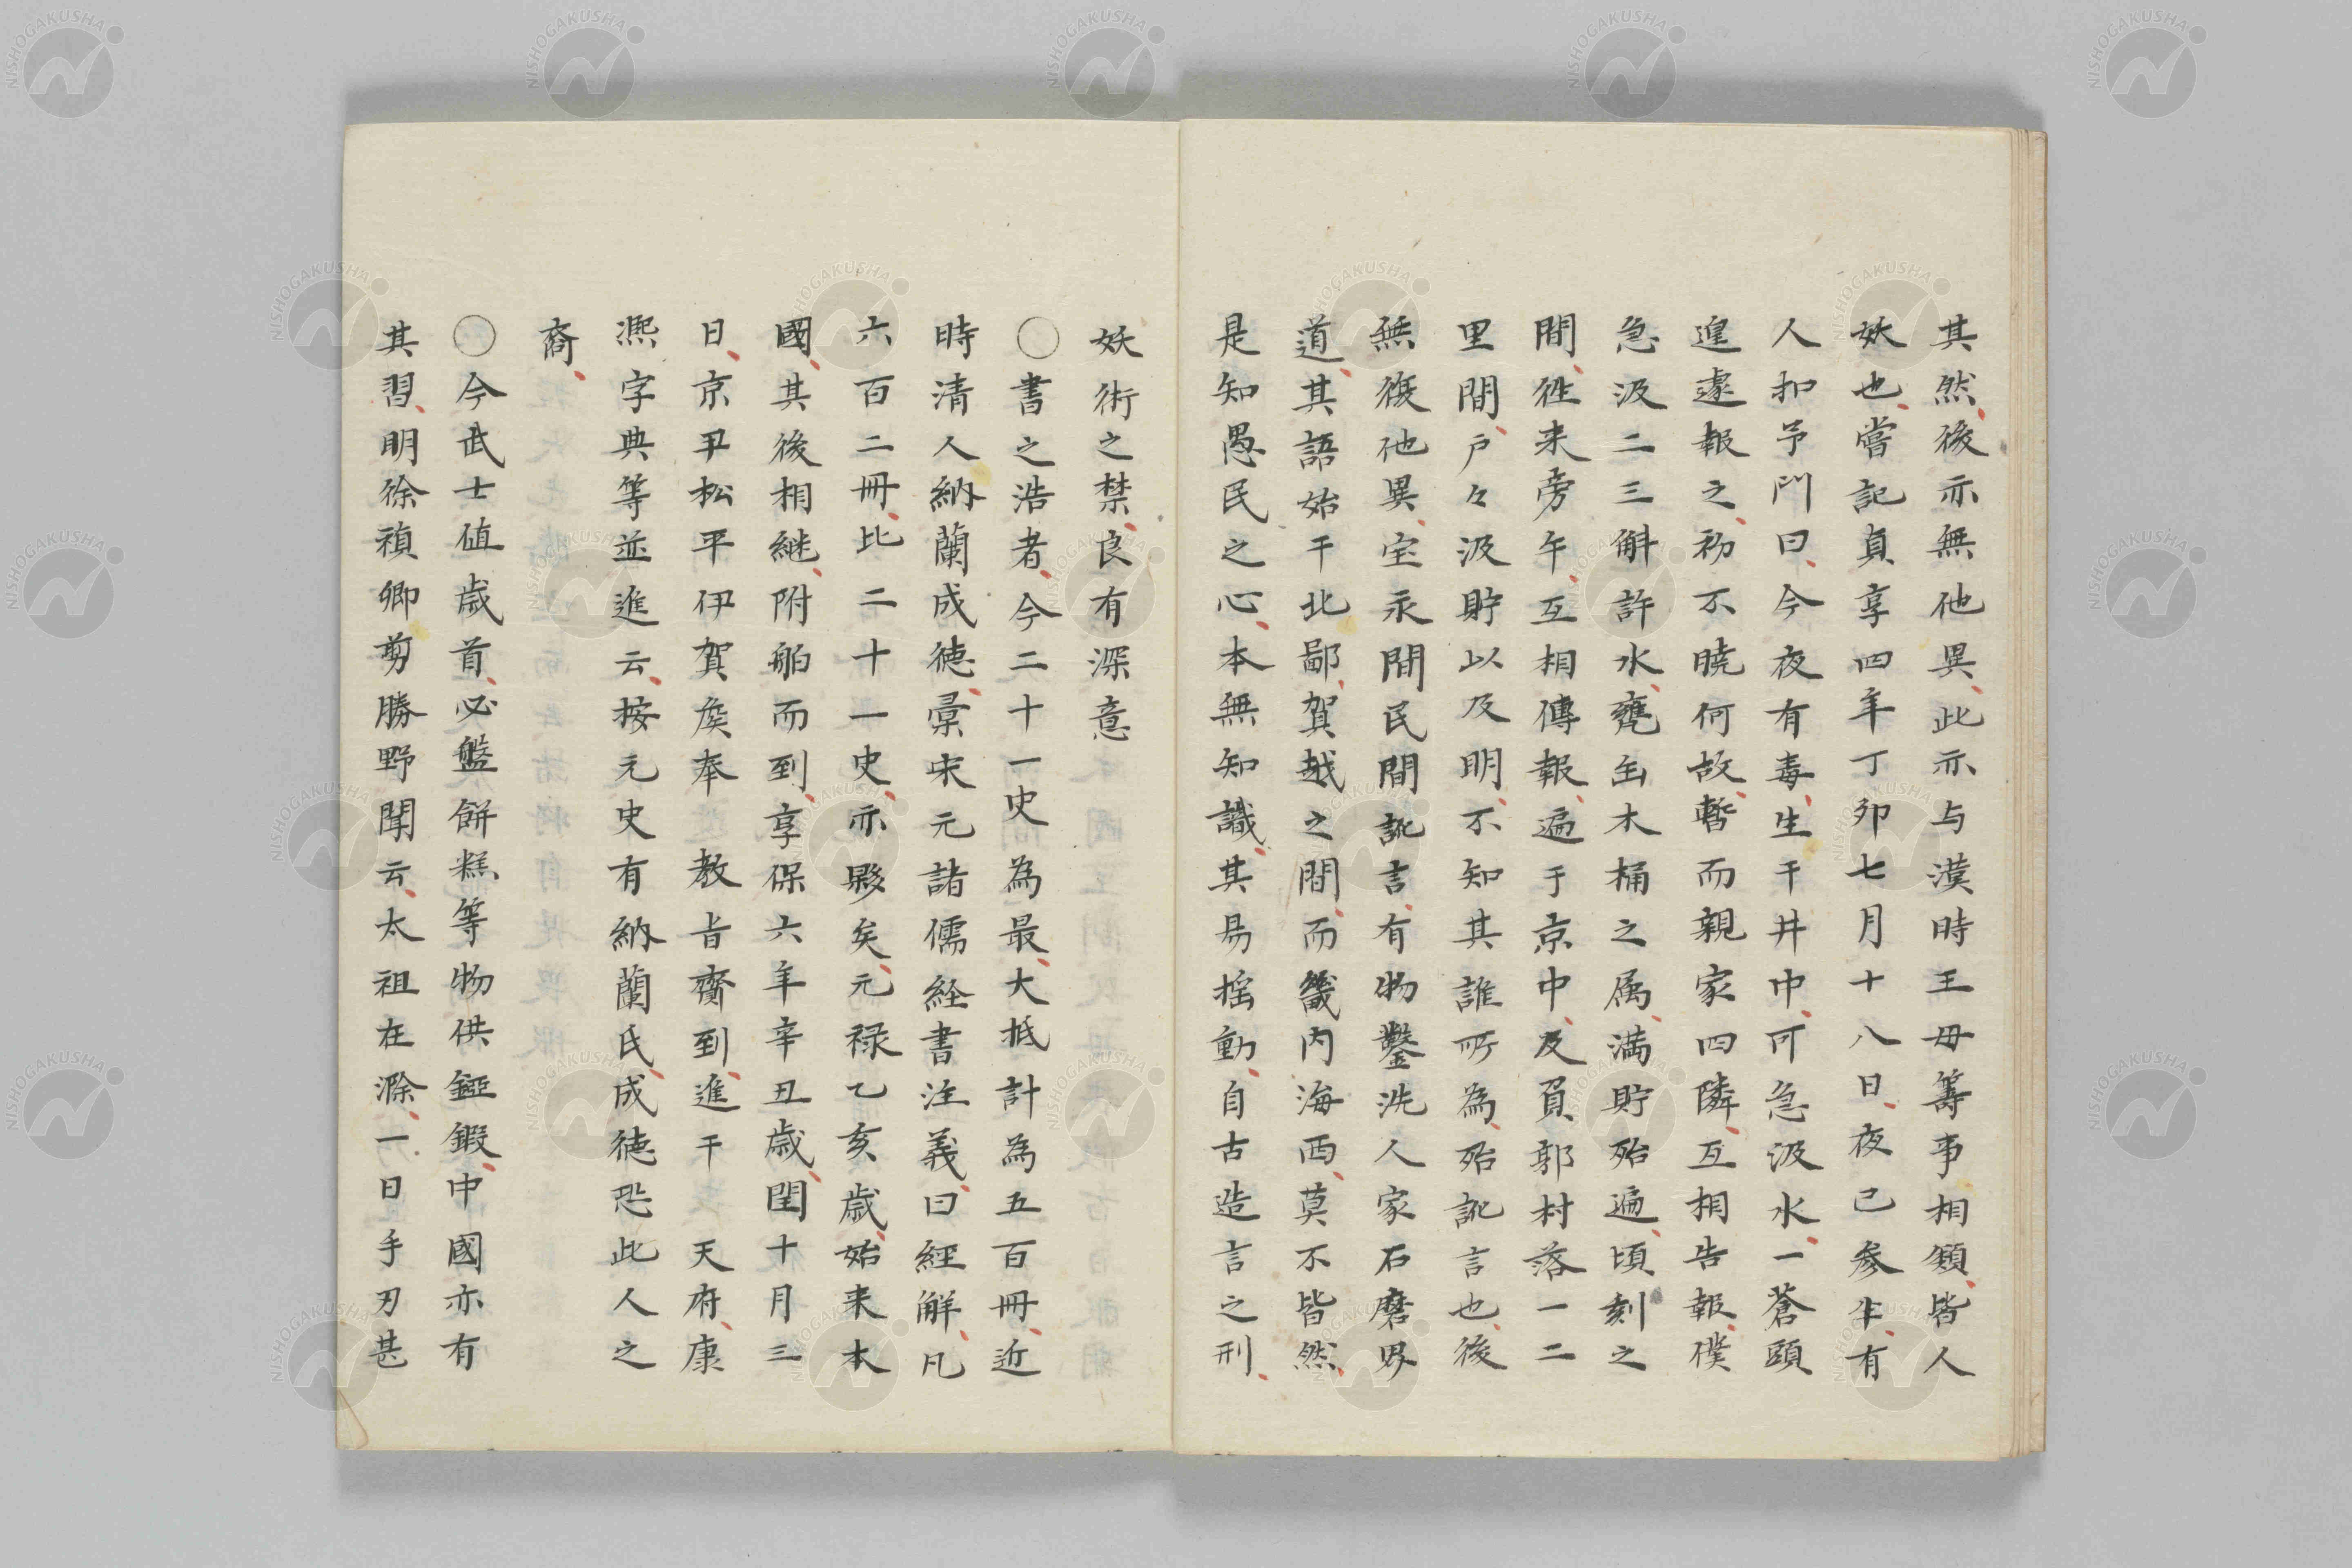 其然後亦無他異此亦与漢時王母籌事相類皆人
妖也嘗記貞享四年丁卯七月十八日夜已参半有
人扣予門曰今夜有毒生于井中可急汲水一蒼頭
遑遽報之初不曉何故暫而親家四隣互相告報僕
急汲二三斛許水甕缶木桶之属満貯殆遍頃刻之
間往来旁午互相傳報遍于京中及負郭村落一二
里間戸々汲貯以及明不知其誰所為殆訛言也後
無復他異宝永間民間訛言有物鑿洗人家石磨界
道其語始于北鄙賀越之間而畿内海西莫不皆然
是知愚民之心本無知識其易揺動自古造言之刑
妖術之禁良有深意
○書之浩者今二十一史為最大抵計為五百冊近
時清人納蘭成徳彙宋元諸儒経書注義曰經解凡
六百二冊比二十一史亦夥矣元禄乙亥歳始来本
國其後相継附舶而到享保六年辛丑歳閏十月三
日京尹松平伊賀矦奉教旨齎到進于天府康
熈字典等並進云按元史有納蘭氏成徳恐此人之
裔
○今武士値歳首必盤餅糕等物供錏鍜中國亦有
其習明徐禎卿剪勝野聞云太祖在滁一日手刃甚
NISHOGAKUSHA